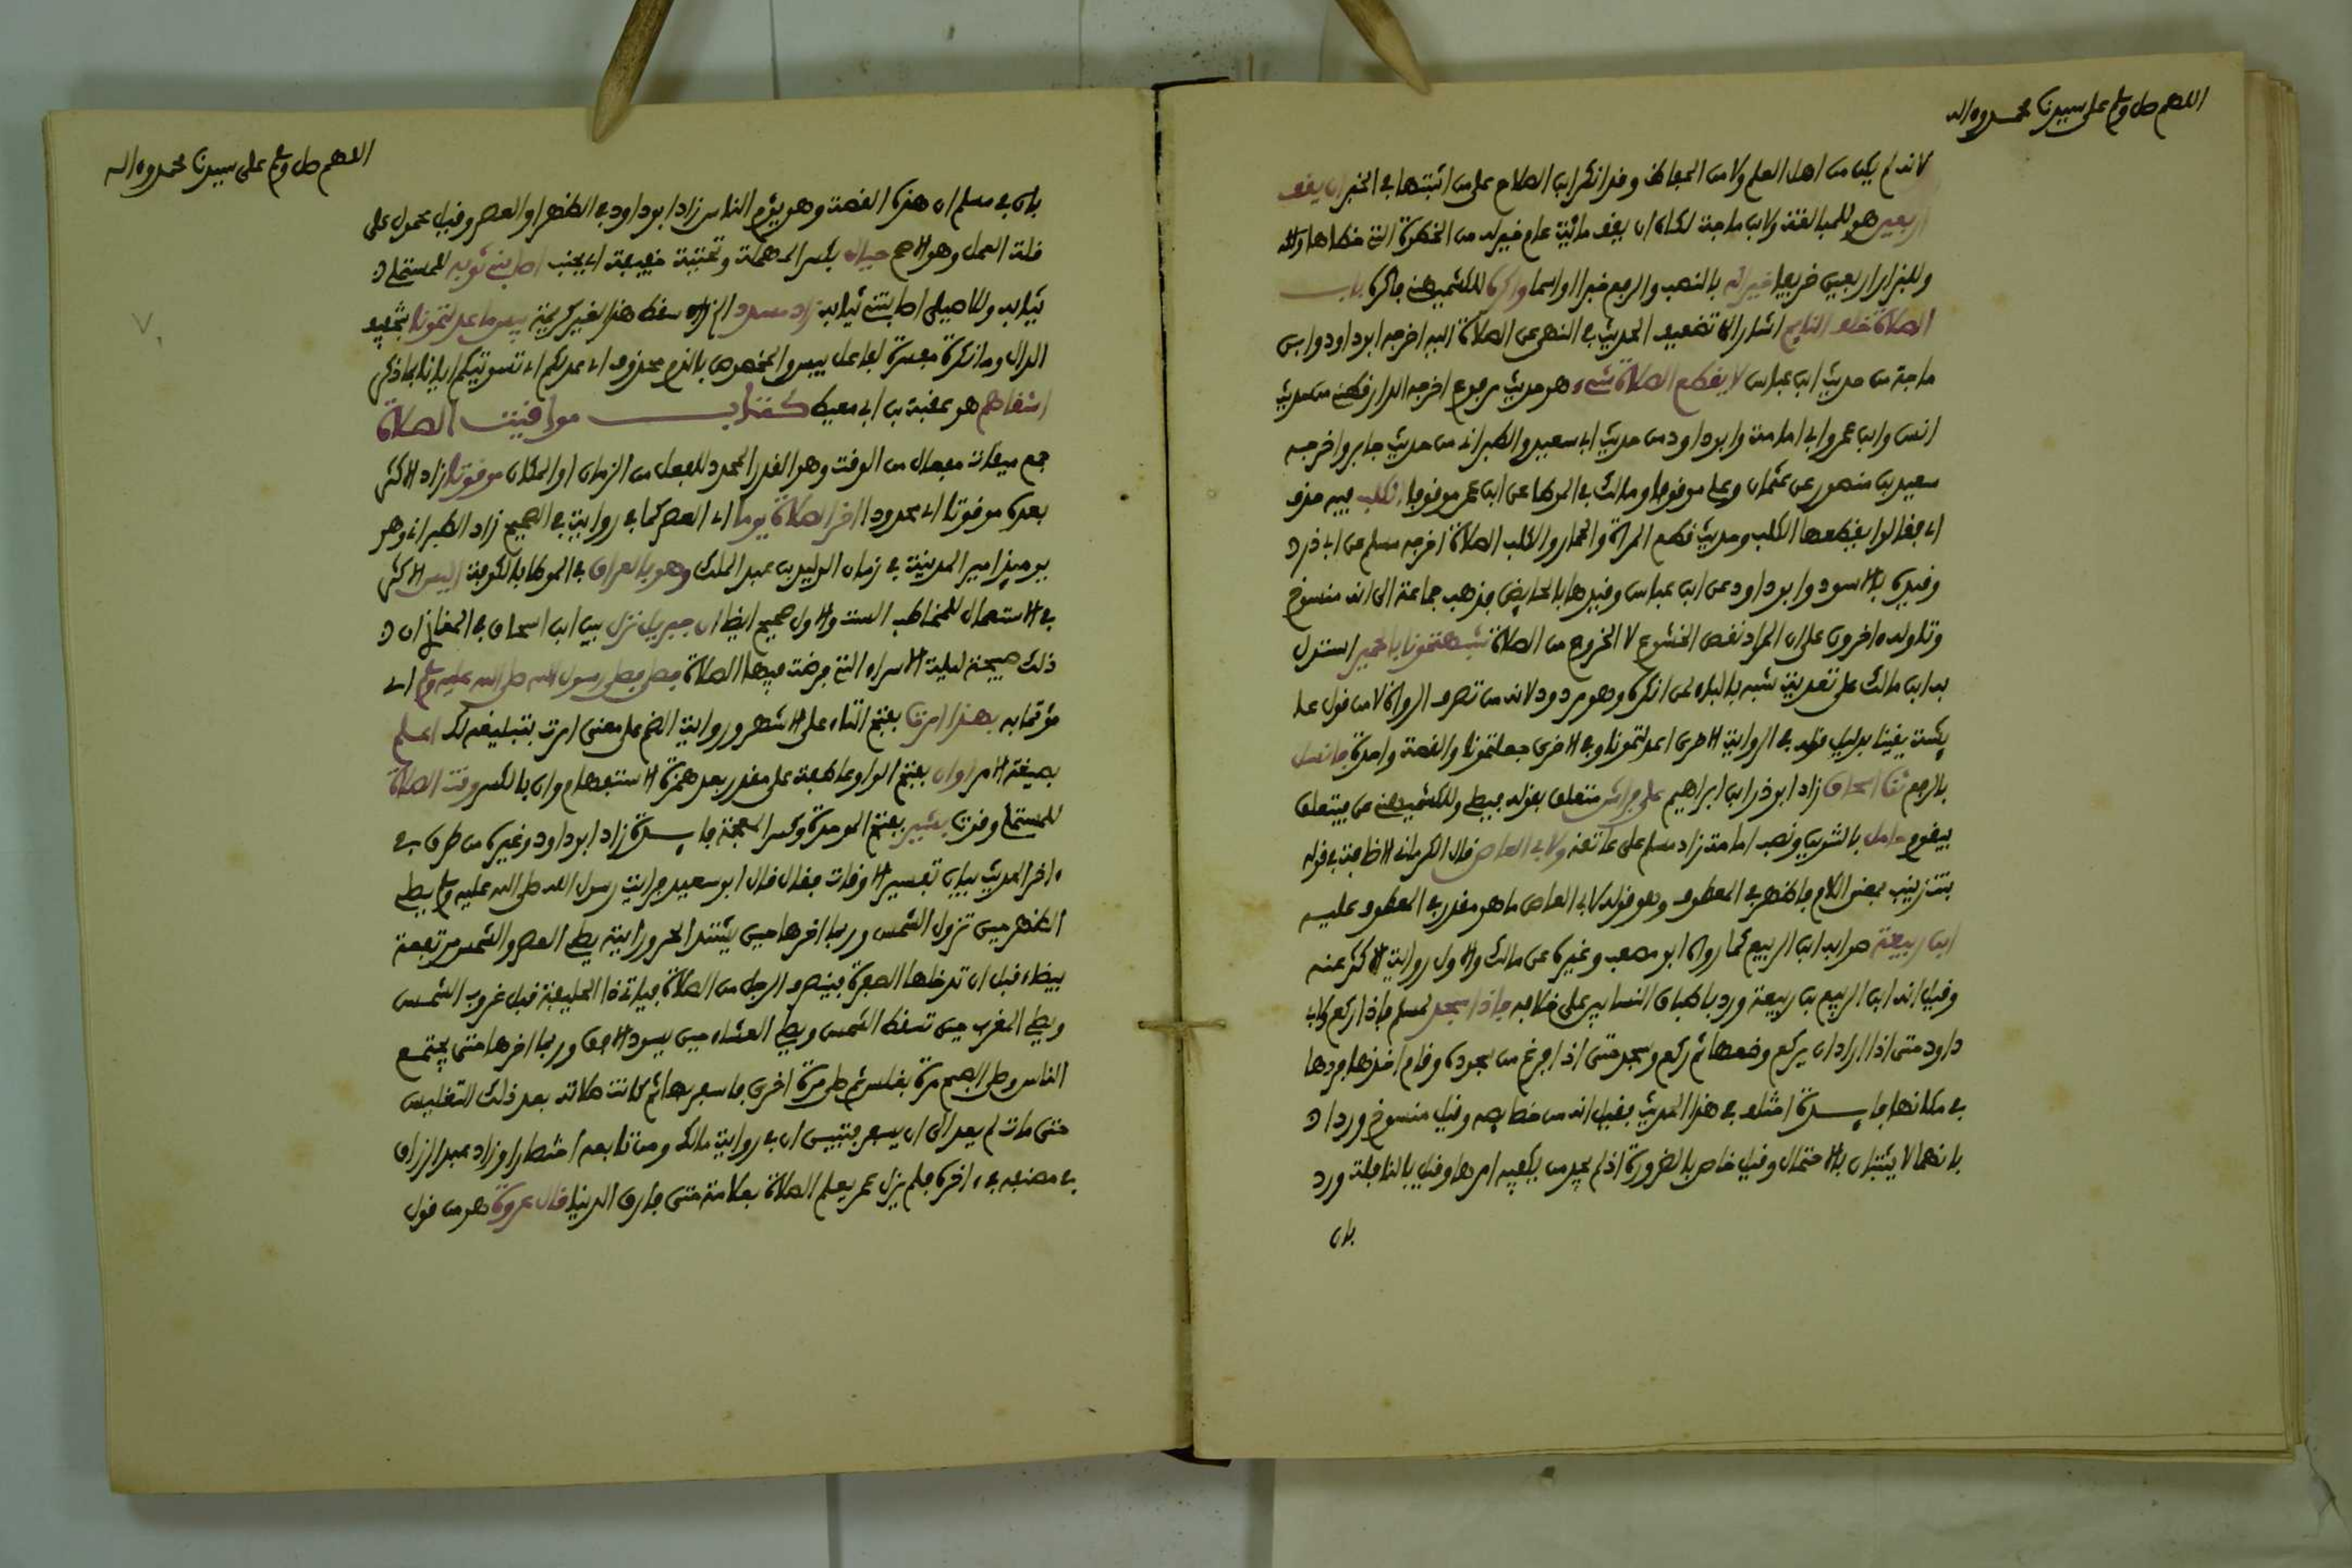 اللهم صل وسلم على سيدنا محمد وءاله
لانه لم يكن من اهل العلم ولا من الحفاظ وقد انكر ابن الصلاح على من اثبتها في الخبر ان يقف
اربعين هو للمبالغة ولابن ماجة لكان ان يقف مائة عام خير له من الخطوة التي خطاها وله
وللبزار اربعين خريفا خير له بالنصب والرفع خبرا او اسما واكره للكشميهني فاكره باب
الصلاة خلف النايم اشار الى تضعيف الحديث في النهي عن الصلاة اليه اخرجه ابو داود وابن
ماجة من حديث ابن عباس لا يقطع الصلاة شيء هو حديث مرفوع اخرجه الدارقطني من حديث
انس وابن عمر وابي امامة وابو داود من حديث ابي سعيد والطبراني من حديث جابر واخرجه
سعيد بن منصور عن عثمان وعلي موقوفا ومالك في الموطا عن ابن عمر موقوفا الكلب فيه حذف
اي فقالوا يقطعها الكلب وحديث قطع المراة والحمار والكلب الصلاة اخرجه مسلم عن ابي ذر
وقيده بالاسود وابو داود عن ابن عباس وقيدها بالحايض فذهب جماعة الى انه منسوخ
وتاوله ءاخرون على ان المراد نقص الخشوع لا الخروج من الصلاة شبهتمونا بالحمير استدل
به ابن مالك على تعدية شبه بالباء لمن انكره وهو مردود لانه من تصرف الرواة لا من قول عا
يشة يقينا بدليل قوله في الرواية الاخرى اعدلتمونا وفي الاخرى جعلتمونا والقصة واحدة فانسل
بالرفع ثنا اسحاق زاد ابو ذر ابن ابراهيم على فراش متعلق بقوله فيصلي وللكشميهني عن فيتعلق
بيقوم حامل بالتنوين ونصب امامة زاد مسلم على عاتقه ولابي العاص قال الكرماني الاضافة في قوله
بنت زينب بمعنى اللام فاظهر في المعطوف وهو قوله لابي العاص ما هو مقدر في المعطوف عليه
ابن ربيعة صوابه ابن الربيع كما رواه ابو مصعب وغيره عن مالك والاول رواية الاكثر عنه
وقيل انه ابن الربيع بن ربيعة ورد باطباق النسابين على خلافه فاذا سجد لمسلم فاذا ركع ولابي
داود حتى اذا اراد ان يركع وضعها ثم ركع وسجد حتى اذا فرغ من سجوده وقام اخذها فردها
في مكانها فايدة اختلف في هذا الحديث فقيل انه من خصايصه وقيل منسوخ ورد
بانهما لا يثبتان بالاحتمال وقيل خاص بالضرورة اذ لم يجد من يكفيه امرها وقيل بالنافلة ورد
بان
اللهم صل وسلم على سيدنا محمد وءاله
بان في مسلم ان هذه القصة وهو يؤم الناس زاد ابو داود في الظهر او العصر وقيل محمول على
قلة العمل وهو الاصح حيال بكسر المهملة وتحتية خفيفة اي بجنب اصابني ثوبه للمستملي
ثيابه وللاصيلي اصابتني ثيابه زاد مسدد الخ سقط هذا لغير كريمة بيس ما عدلتمونا بتخفيف
الدال وما نكرة مفسرة لفاعل بيس والمخصوص بالذم محذوف اي عدلكم اي تسويتكم ايانا بما ذكر
اشقاهم هو عقبة بن ابي معيط كتاب مواقيت الصلاة
جمع ميقات مفعال من الوقت وهو القدر المحدد للفعل من الزمان او المكان موقوتا زاد الاكثر
بعده موقوتا اي محدودا اخر الصلاة يوما اي العصر كما في رواية في الصحيح زاد الطبراني وهو
يوميذ امير المدينة في زمان الوليد بن عبد الملك وهو بالعراق في الموطا بالكوفة اليس الاكثر
في الاستعمال للمخاطب الست والاول صحيح ايضا ان جبريل نزل بين ابن اسحاق في المغازي ان
ذلك صبيحة ليلة الاسراء التي فرضت فيها الصلاة فصلى فصلى رسول الله صلى الله عليه وسلم اي
مؤتما به بهذا امرت بفتح التاء على الاشهر ورواية الضم على معنى امرت بتبليغه لك اعلم
بصيغة الامر اوان بفتح الواو عاطفة على مقدر بعد همزة الاستفهام وان بالكسر وقت الصلاة
للمستملي وقوت بشير بفتح الموحدة وكسر المعجمة فايدة زاد ابو داود وغيره من طرق في
ءاخر الحديث بيان تفسير الاوقات فقال قال ابو سعيد فرايت رسول الله صلى الله عليه وسلم يصلي
الظهر حين تزول الشمس وربما اخرها حين يشتد الحر ورايته يصلي العصر والشمس مرتفعة
بيضاء قبل ان تدخلها الصفرة فينصرف الرجل من الصلاة فياتي ذا الحليفة قبل غروب الشمس
ويصلي المغرب حين تسقط الشمس ويصلي العشاء حين يسود الافق وربما اخرها حتى يجتمع
الناس وصلى الصبح مرة بغلس ثم صلى مرة اخرى فاسفر بها ثم كانت صلاته بعد ذلك التغليس
حتى مات لم يعد الى ان يسفر فتبين ان في رواية مالك ومن تابعه اختصارا وزاد عبد الرزاق
في مصنفه في ءاخره فلم يزل عمر يعلم الصلاة بعلامة حتى فارق الدنيا قال عروة هو من قول